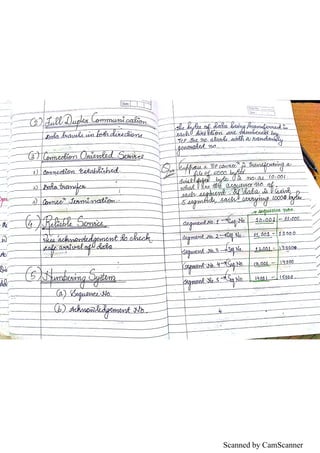 (2) Full Duplex Communication
Data travels in both directions
(3) Connection Oriented Service
1) Connection Established
2) Data transfer
3) Connecn Termination
(4) Reliable Service
Uses acknowledgement to check
safe arrival of data
(5) Numbering System
(a) Sequence No.
(b) Acknowledgement No.
The bytes of data being transferred in
each direction are numbered by
TCP. The no. starts with a randomly
generated no.
Suppose a TCP connecn is transferring a
file of 5000 bytes.
first byte is no. as 10,001.
what are the sequence no. of
each segment if data is
5 segments each carrying 1000 bytes.
Sequence No.
Segment No. 1 → Seq No. 10,001 - 11,000
Segment No. 2 → Seq No. 11,001 - 12000
Segment No. 3 → Seq No. 12,001 - 13000
Segment No. 4 → Seq No. 13,001 - 14000
Segment No. 5 → Seq No. 14001 - 15000
Scanned by CamScanner